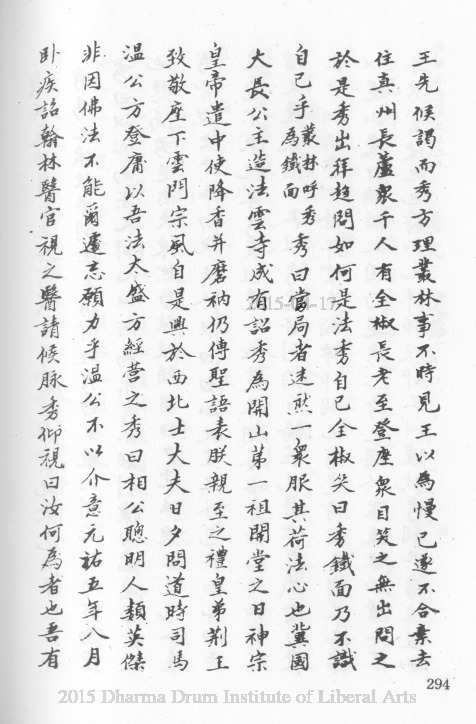 王先候謁而秀方理叢林事不時見王以為慢己遂不合棄去
住真州長蘆眾千人有全椒長老至登座眾目笑之無出問之
於是秀出拜趨問如何是法秀自己全椒笑曰秀鐵面乃不識
自己乎叢林呼秀為鐵面秀曰當局者迷然一眾服其荷法心也冀國
大長公主造法雲寺成有詔秀為開山第一祖開堂之日神宗
皇帝遣中使降香并磨衲仍傳聖語表朕親至之禮皇弟荊王
致敬座下雲門宗風自是興於西北士大夫日夕問道時司馬
溫公方登庸以吾法太盛方經營之秀曰相公聰明人類英傑
非因佛法不能爾遽忘願力乎溫公不以介意元祐五年八月
臥疾詔翰林醫官視之醫請候脉秀仰視曰汝何為者也吾有
294
2015 Dharma Drum Institute of Liberal Arts